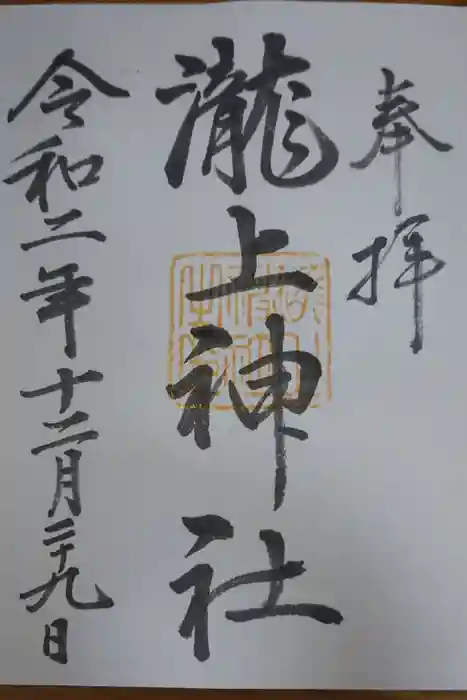 奉拝
瀧上神社
令和二年十二月二十九日